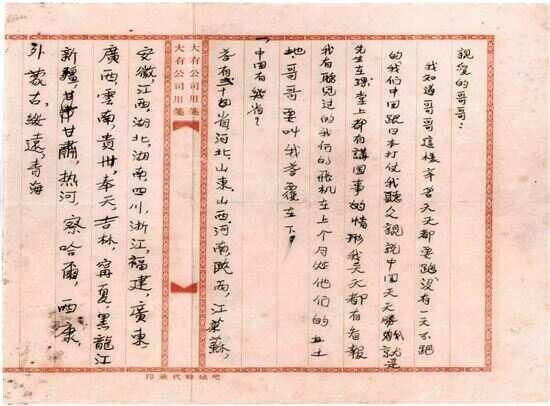 親愛的哥哥:
我知道哥哥這樣辛苦天天都要跑沒有一天不跑
的我們中国跟日本打仗我聽人說說中国天天勝
先生在課堂上都有講国事的情形我天天都有看報
我有聽見过的我们的飛机在上个月炸他们的
地,哥哥要叫我答覆在下:
一,中国有幾省?
答有二十四省河北,山東,山西,河南,陝西,江蘇,
安徽,江西,湖北,湖南,四川,浙江,福建,廣東,
廣西,雲南,貴州,奉天,吉林,甯夏,黑龍江
新疆,甘肅,热河,察哈爾,西康,
外蒙古,綏遠,青海
大有公司用箋
大有公司用箋